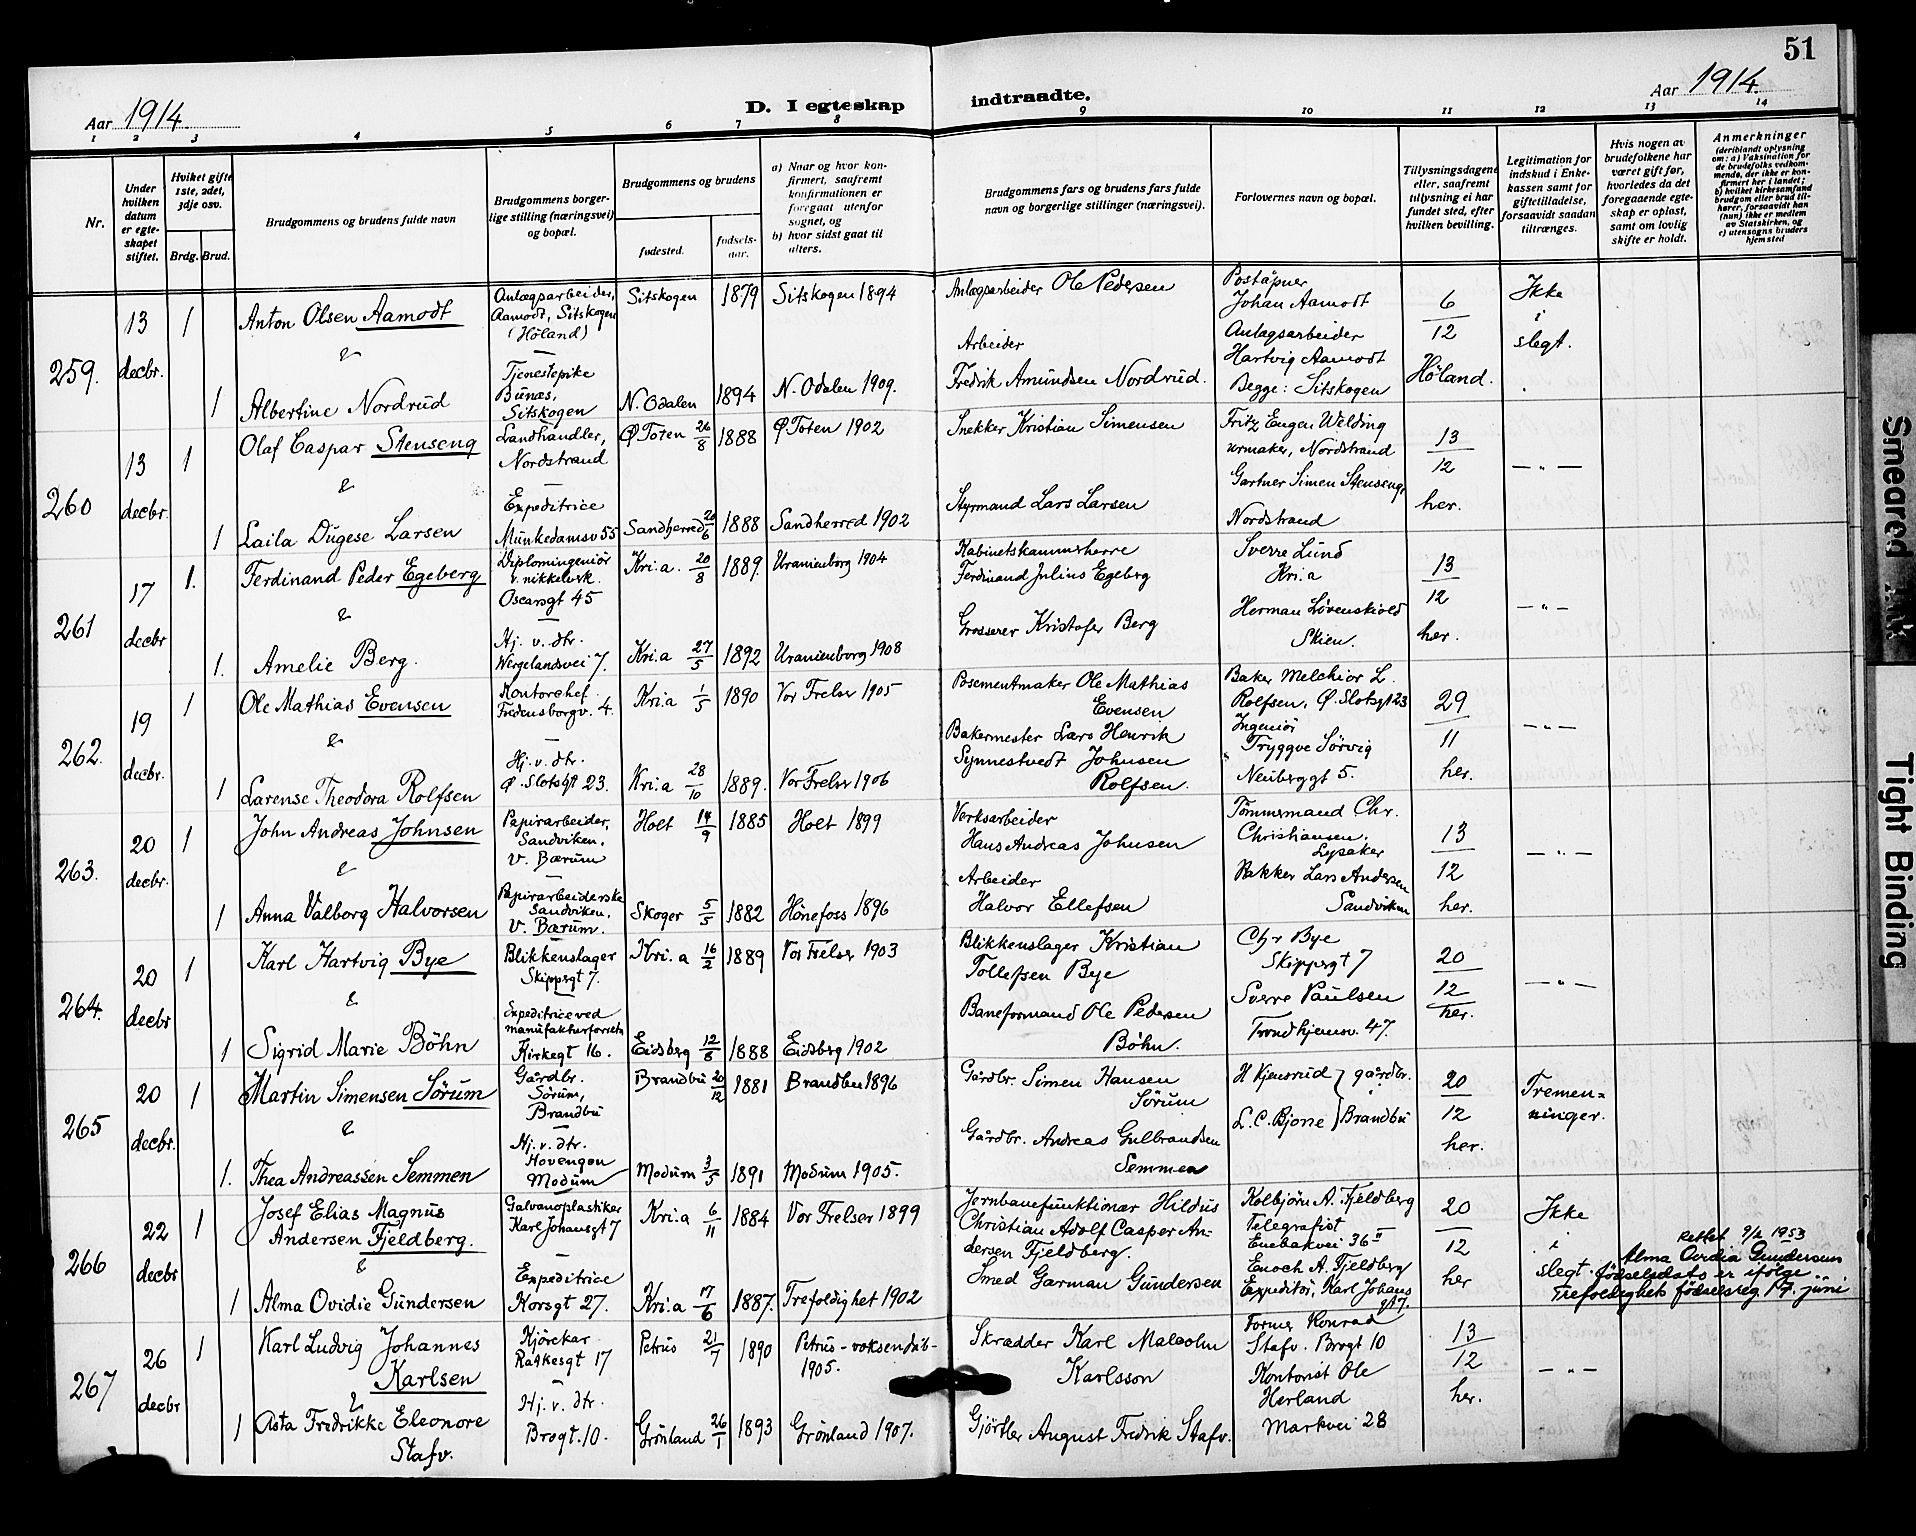 51
Aar 1914
D. I egteskap indtraadte.
Aar 1914
1 2 3 4 5 6 7 8 9 10 11 12 13 14
Nr.
Under hvilken datum er egteskapet stiftet.
Hviket gifte 1ste, 2det, 3dje osv.
Brdg. Brud.
Brudgommens og brudens fulde navn
Brudgommens borgerlige stilling (næringsvei) og bopæl.
Brudgommens og brudens
fødested.
fødselsaar.
a) Naar og hvor konfirmert, saafremt konfirmationen er foregaat utenfor sognet, og
b) hvor sidst gaat til alters.
Brudgommens fars og brudens fars fulde navn og borgerlige stillinger (næringsvei).
Forlovernes navn og bopæl.
Tillysningsdagene eller, saafremt tillysning ei har fundet sted, efter hvilken bevilling.
Legitimation for indskud i Enkekassen samt for giftetilladelse, forsaavidt saadan tiltrænges.
Hvis nogen av brudefolkene har været gift før, hvorledes da det foregaaende egteskap er opløst, samt om lovlig skifte er holdt.
Anmerkninger
(deriblandt oplysning om: a) Vaksination for de brudefolks vedkommende, der ikke er konfirmert her i landet; b) hvilket kirkesamfund brudgom eller brud tilhører, forsaavidt han (hun) ikke er medlem av Statskirken, og c) utensogns bruders hjemsted
259. 13 decbr.
1 Anton Olsen Aamodt
Anlægsarbeider, Aamodt, Sitskogen (Höland)
Sitskogen 1879 Sitskogen 1894
Anlægsarbeider Ole Pedersen
&
1 Albertine Nordrud
Tjenestepike Bunæs, Sitskogen
N. Odalen 1894 N. Odalen 1909.
Arbeider Fredrik Amundsen Nordrud.
Poståpner Johan Aamodt
Anlagsarbeider Hartvig Aamodt
Begge: Sitskogen
6/12 Höland.
Ikke i slegt.
260 13 decbr.
1 Olaf Caspar Stenseng
Landhandler, Nordstrand
Ø. Toten 26/8 1888 Ø Toten 1902
Snekker Kristian Simensen
&
1 Laila Dugese Larsen
Expeditrice Munkedamsv 55
Sandherred 20/6 1888 Sandherred 1902
Styrmand Lars Larsen
Fritz Eugen Welding urmaker, Nordstrand
Gartner Simen Stenseng, Nordstrand
13/12 her.
— " —
261 17 decbr
1. Ferdinand Peder Egeberg
Diplomingeniör v. nikkelverk. Oscarsgt 45
Kri.a. 20/8 1889. Uranienborg 1904
Kabinetskammerherre Ferdinand Julius Egeberg
&
1. Amelie Berg.
Hj. v. dtr. Wergelandsvei 7.
Kri.a 27/5 1892 Uranienborg 1908
Grosserer Kristofer Berg
Sverre Lund Kri.a
Herman Lövenskiold Skien.
13/12 her.
— " —
262. 19 decbr.
1 Ole Mathias Evensen
Kontorchef Fredensborgv. 4.
Kri.a 1/5 1890 Vor Frelser 1905
Posementmaker Ole Mathias Evensen
&
1 Larense Theodora Rolfsen
Hj. v. dtr. Ø. Slotsgt 23.
Kri.a 28/10 1889. Vor Frelser 1906
Bakermester Lars Henrik Synnestvedt Johnsen Rolfsen.
Baker Melchior L. Rolfsen, Ø. Slotsgt 23
Ingeniör Tryggve Sörvig Neuberggt 5.
29/11 her.
— " —
263. 20 decbr.
1 John Andreas Johnsen
Papirarbeider, Sandviken, V. Bærum
Holt 14/9 1885 Holt 1899
Verksarbeider Hans Andreas Johnsen
&
1 Anna Valborg Halvorsen
Papirarbeiderske Sandviken, V. Bærum.
Skoger 5/5 1882 Hönefoss 1896
Arbeider Halvor Ellefsen
Tömmermand Chr. Christiansen, Lysaker
Pakker Lars Andersen Sandviken
13/12 her.
— " —
264. 20 decbr
1 Karl Hartvig Bye
Blikkenslager Skippergt 7.
Kri.a 16/2 1889 Vor Frelser 1903
Blikkenslager Kristian Tollefsen Bye
&
1 Sigrid Marie Böhn
Expeditrice ved manufakturforretn Kirkegt 16.
Eidsberg 12/8 1888 Eidsberg 1902
Baneformand Ole Pedersen Böhn.
Chr Bye Skippergt 7
Sverre Paulsen Trondhjemsv. 47.
20/12 her.
— " —
265 20 decbr.
1 Martin Simensen Sörum
Gårdbr. Sörum, Brandbu
Brandbu 20/12 1881 Brandbu 1896
Gårdbr. Simen Hansen Sörum
&
1. Thea Andreassen Semmen
Hj. v. dtr. Hovengen Modum
Modum 3/5 1891 Modum 1905.
Gårdbr. Andreas Gulbrandsen Semmen
H Kjensrud } gårdbr.
L. C. Bjone } Brandbu
20/12 her.
Tremenninger.
266 22 decbr
1 Josef Elias Magnus Andersen Fjeldberg.
Galvanoplastiker Karl Johansgt 7
Kri.a 6/11 1884 Vor Frelser 1899
Jernbanefunktionær Hildus Christian Adolf Casper Andersen Fjeldberg.
&
1 Alma Ovidie Gundersen
Expeditrice Korsgt 27.
Kri.a 17/6 1887. Trefoldighet 1902
Smed Garman Gundersen
Kolbjörn A. Fjeldberg Telegrafist Enebakvei 36 II
Enoch A. Fjeldberg Expeditör, Karl Johans gt 7.
20/12 her
Ikke i slegt.
Rettet 9/2 1953
Alma Ovidia Gundersens födselsdato er ifölge Trefoldighets födselsreg. 17. juni
267 26 decbr
1 Karl Ludvig Johannes Karlsen
Kjörekar Ratkesgt 17
Petrus 21/7 1890 Petrus - voksendåb - 1905.
Skrædder Karl Malcolm Karlsson
&
1 Asta Fredrikke Eleonore Stafv.
Hj. v. dtr. Brogt. 10.
Grönland 26/1 1893 Grönland 1907.
Gjörtler August Fredrik Stafv.
Former Konrad Stafv. Brogt 10
Kontorist Ole Herland Markvei 28
13/12 her.
— " —
Smeared Ink
Tight Binding